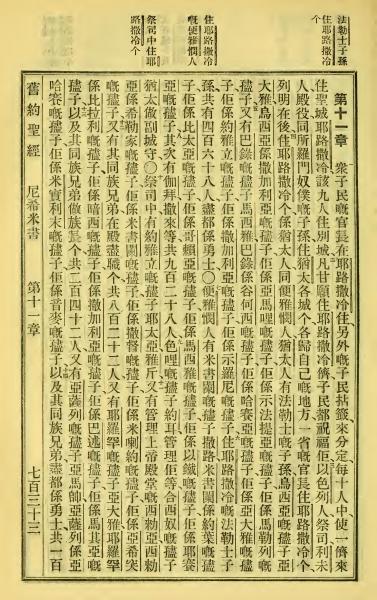 法勒士子孫
住耶路撒冷
个
住耶路撒冷
嘅便雅憫人
祭司中住耶
路撒冷个
第十一章 衆子民嘅官長在耶路撒冷住另外嘅子民拈籤來分定每十人中使一儕來
住聖城耶路撒冷該九人住別城凡甘願住耶路撒冷儕子民都祝福佢以色列人祭司利未
人殿役同所羅門奴僕嘅子孫住猶太各城个各歸自己嘅地方一省嘅官長住耶路撒冷个
列明在後住耶路撒冷个係猶太人同便雅憫人猶太人有法勒士嘅子孫烏西亞嘅孻子亞
大雅烏西亞係撒加利亞嘅孻子佢係亞馬哩嘅孻子佢係示法提亞嘅孻子佢係馬勒列嘅
孻子又有巴錄嘅孻子馬西雅巴錄係谷何西嘅孻子佢係哈賽亞嘅孻子佢係亞大雅嘅孻
子佢係約雅立嘅孻子佢係撒加利亞嘅孻子佢係示羅尼嘅孻子住耶路撒冷嘅法勒士子
孫共有四百六十八人盡都係勇士○便雅憫人有米書闌嘅孻子撒路米書闌係約葉嘅孻
子佢係比太亞嘅孻子佢係哥賴亞嘅孻子佢係馬西雅嘅孻子佢係以鐵嘅孻子佢係耶賽
亞嘅孻子其次有伽拜撒來等共九百二十八人色哩嘅孻子約耳管理佢等合西奴嘅孻子
猶太做副城守○祭司中有約雅立嘅孻子耶太亞雅斤又有管理上帝殿堂嘅西勑亞西勑
亞係希勒家嘅孻子佢係米書闌嘅孻子佢係撒督嘅孻子佢係米喇約嘅孻子佢係亞希突
嘅孻子又有其同族兄弟在殿盡職个共八百二十二人又有耶羅罕嘅孻子亞大雅耶羅罕
係比拉利嘅孻子佢係暗西嘅孻子佢係撒加利亞嘅孻子佢係巴述嘅孻子佢係馬其亞嘅
孻子以及其同族兄弟做族長个共二百四十二人又有亞薩列嘅孻子亞馬帥亞薩列係亞
哈賽嘅孻子佢係米實利末嘅孻子佢係音麥嘅孻子以及其同族兄弟盡都係勇士共一百
舊約聖經 尼希米書 第十一章 七百三十三